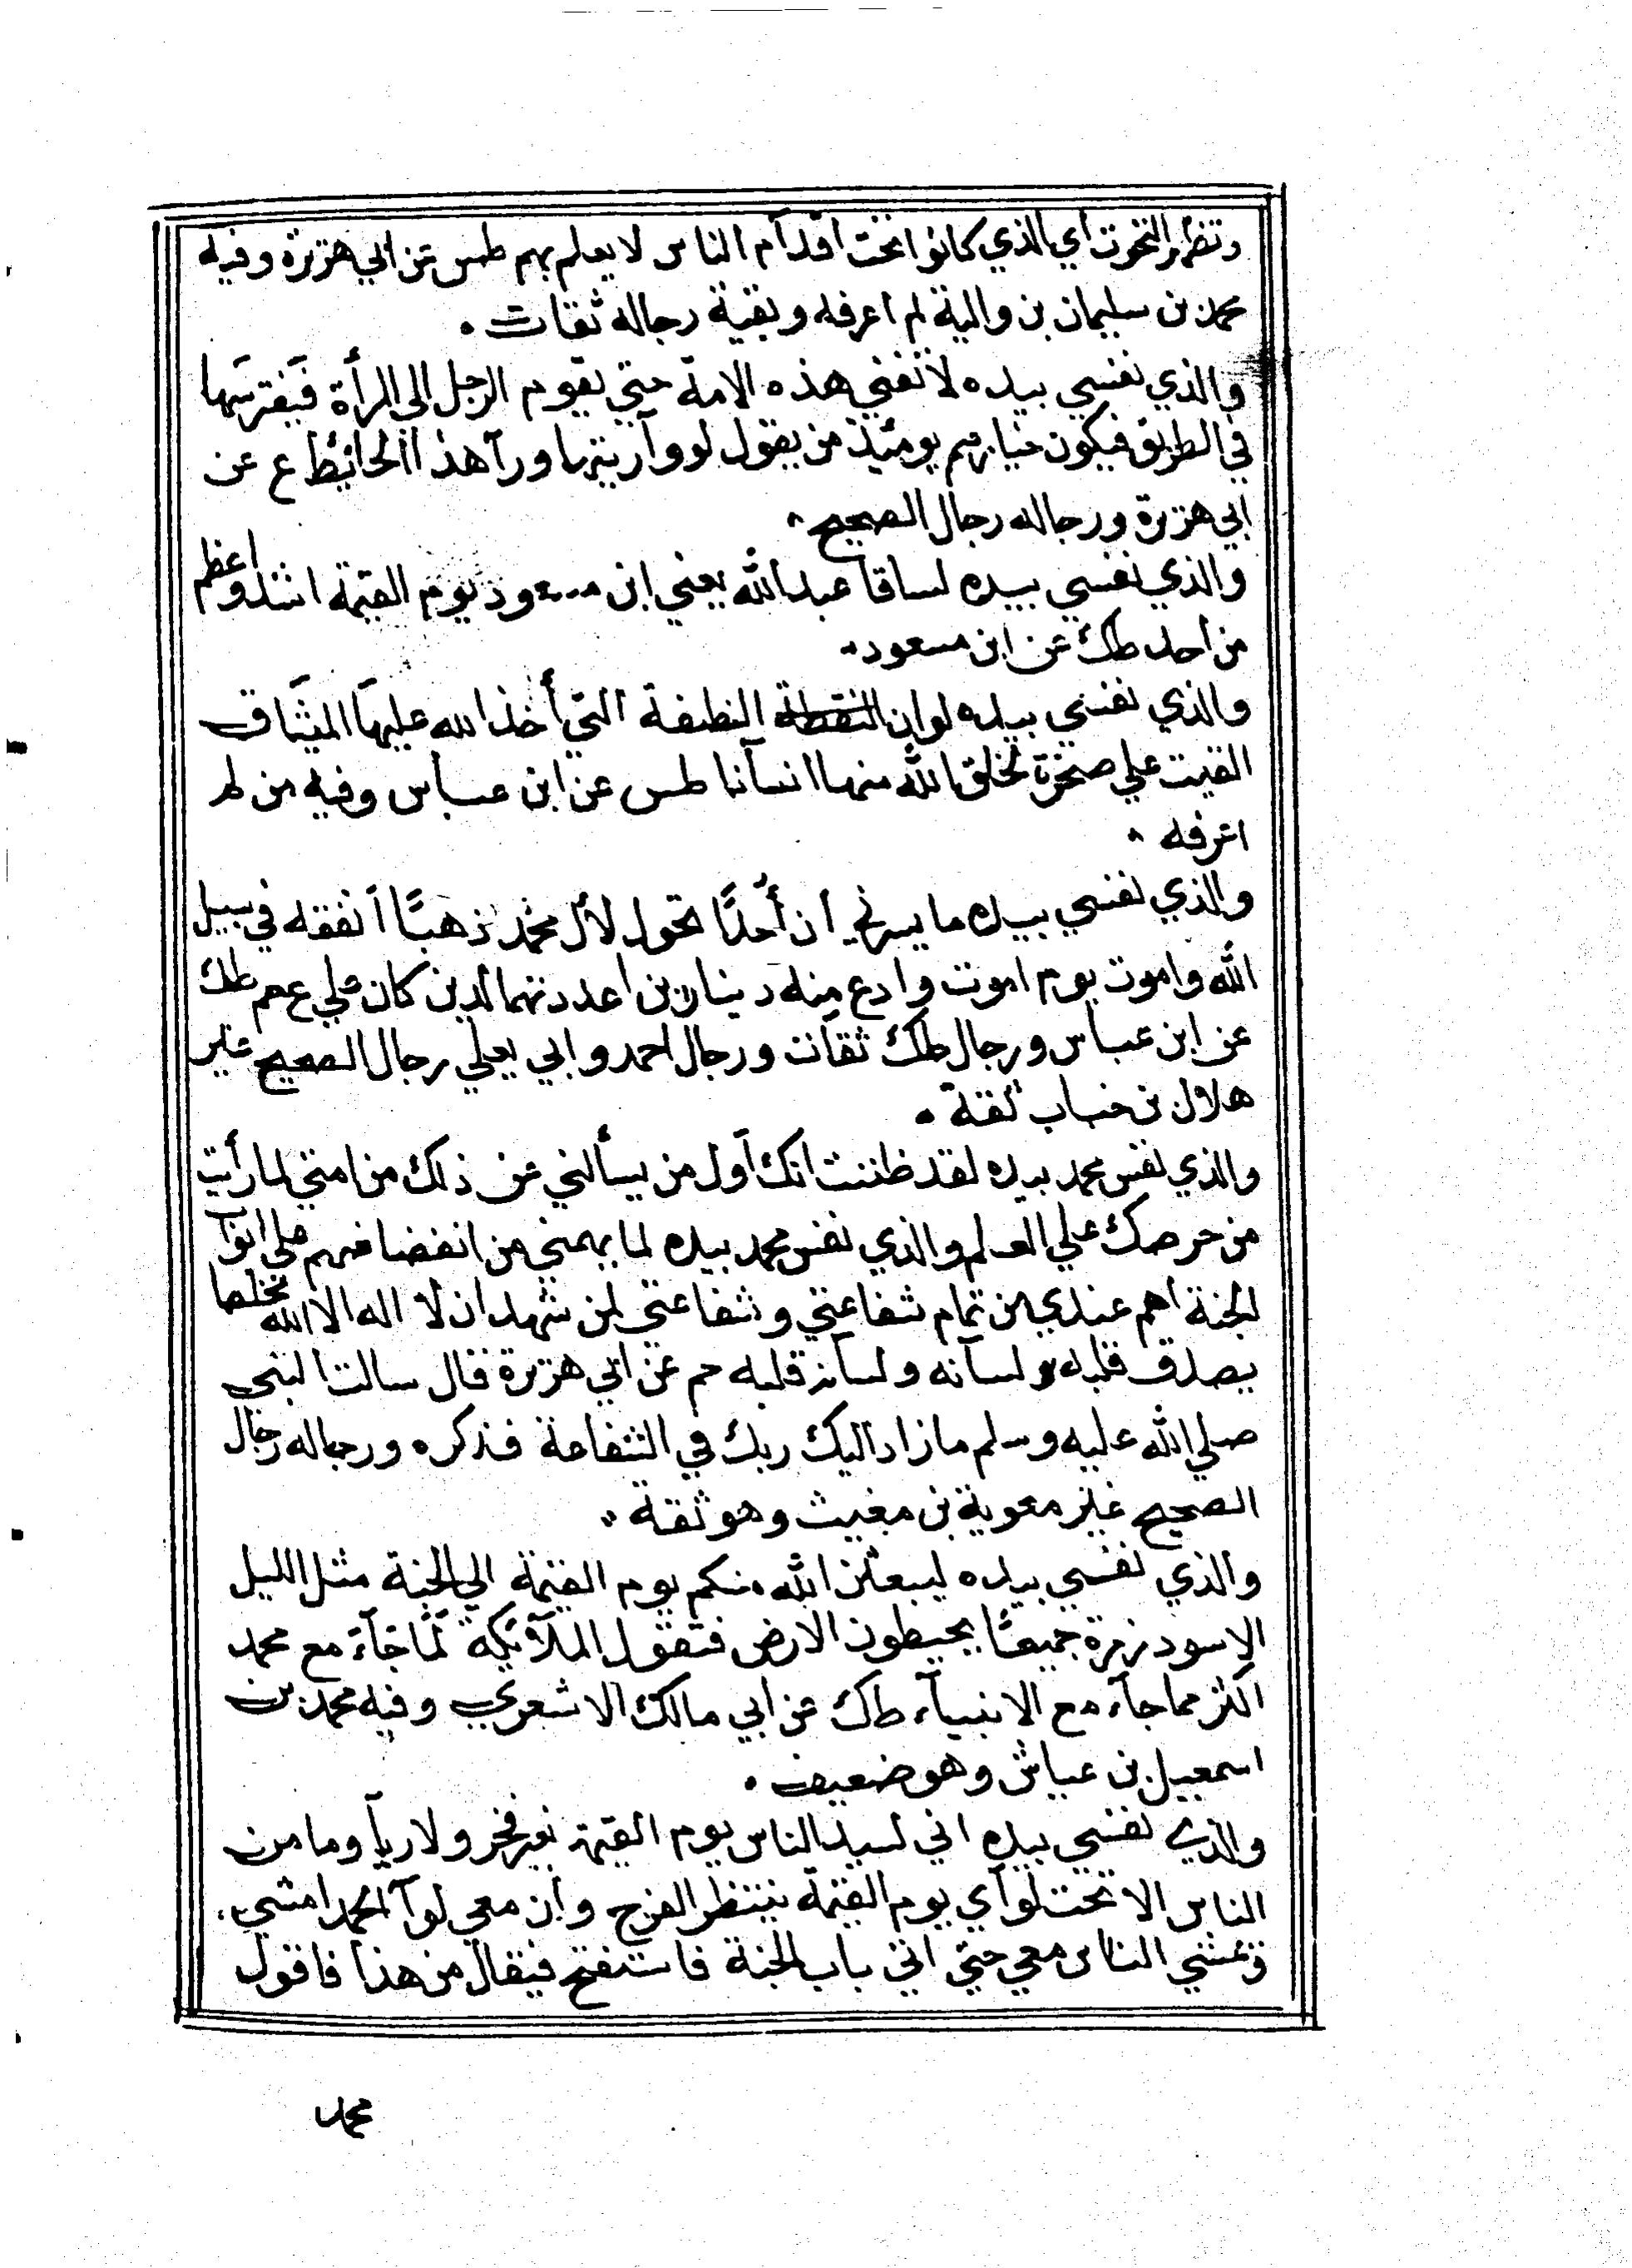 وتظهر التحوت اي الذي كانوا تحت اقدآم الناس لا يعلم بهم طس عن ابي هريرة وفيه
محمد بن سليمان بن والبة لم اعرفه وبقية رجاله ثقات .
والذي نفسي بيده لا تفني هذه الامة حتي يقوم الرجل الي المرأة فيفترشها
في الطريق فيكون خيارهم يومئذ من يقول لو وآريتها ورآ هذا الحائط ع عن
ابي هريرة ورجاله رجال الصحيح
والذي نفسي بيده لساقا عبد الله يعني ابن مسعود يوم القيمة اشد واعظم
من احد طك عن ابن مسعود
والذي نفسي بيده لو ان النقطة النطفة التي أخذ الله عليها الميثاق
القيت علي صخرة لخلق الله منها انسآنا طس عن ابن عباس وفيه من لم
اعرفه
والذي نفسي بيده ما يسرني أن أُحدًا تحول لآل محمد ذهبًا أنفقه في سبيل
الله واموت يوم اموت وادع منه دينارين اعددتهما لدين كان علي ع حم طك
عن ابن عباس ورجال طك ثقآت ورجال احمد وابي يعلي رجال الصحيح غير
هلال بن خباب ثقة .
والذي نفس محمد بيده لقد ظننت انك أول من يسألني عن ذلك من امتي لما رأيت
من حرصك علي العلم والذي نفس محمد بيده لما يهمني من انفضافهم علي ابوآ
الجنة أهم عندي من تمام شفاعتي وشفاعتي لمن شهد ان لا اله الا الله مخلصا
يصدق قلبه ولسآنه ولسآنه قلبه حم عن ابي هريرة قال سالت النبي
صلي الله عليه وسلم ما زاد اليك ربك في الشفاعة فذكره ورجاله رجال
الصحيح غير معوية بن مغيث وهو ثقة
والذي نفسي بيده ليبعثن الله منكم يوم القيمة الي الجنة مثل الليل
الاسود زمرة جميعًا يحيطون الارض فتقول الملآئكة لما جآء مع محمد
اكثر مما جآء مع الانبيآء طك عن ابي مالك الاشعري وفيه محمد بن
اسمعيل بن عياش وهو ضعيف .
والذي نفسي بيده اني لسيد الناس يوم القيمة بغير فخر ولا ريآ وما من
الناس الا تحت لوآي يوم القيمة ينتظر الفرج وان معي لوآ الحمد امشي
وتمشي الناس معي حتي اتي باب الجنة فاستفتح فيقال من هذا فاقول
محمد